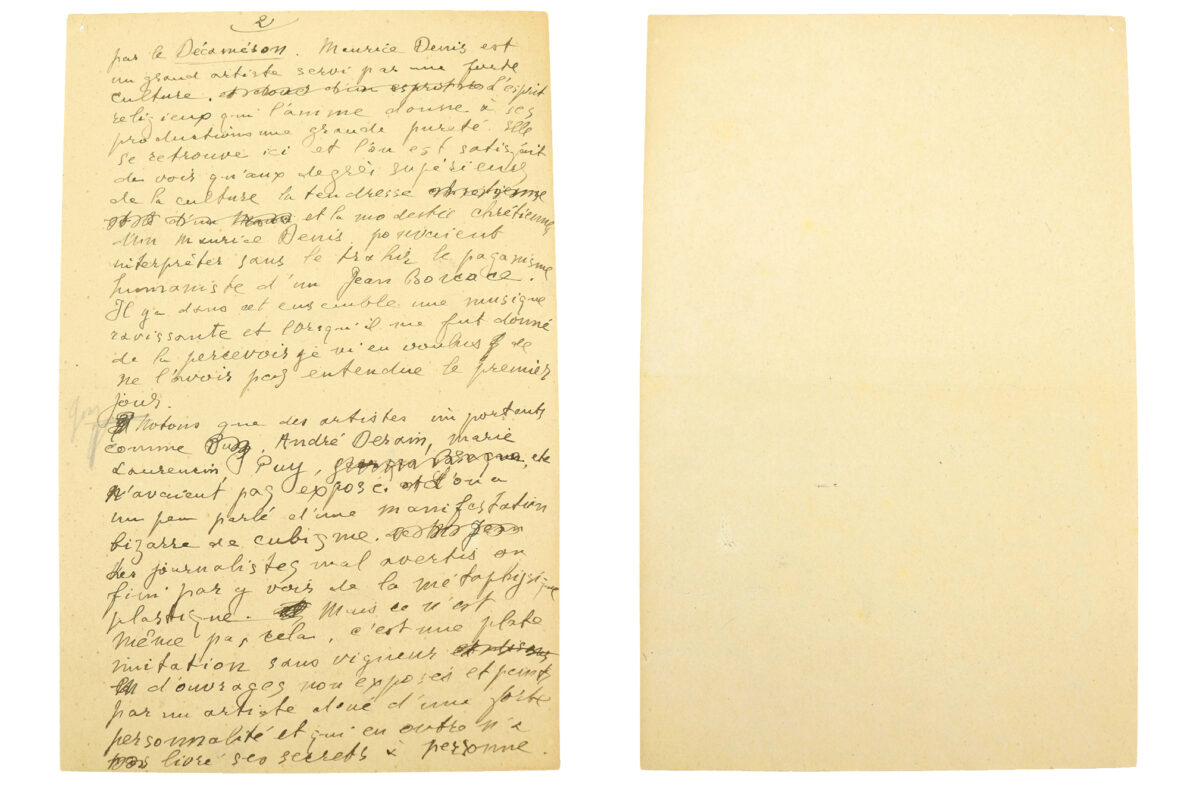 2
par le Décaméson. Maurice Denis est
un grand artiste servi par une forte
culture. d'un esprit L'esprit
religieux qui l'amme donne à ses
productions une grande pureté. Elle
se retrouve ici et l'on est satisfait
de voir qu'aux degrès supérieurs
de la culture la tendresse
d'un et la modestie chrétienne
d'un Maurice Denis pouvaient
interpréter sans le trahir le paganisme
humaniste d'un Jean Boccace.
Il y a dans cet ensemble une musique
ravissante et lorsqu'il me fut donné
de la percevoir je m'en voulus de
ne l'avoir pas entendue le premier
jour.
Notons que des artistes importants
comme André Derain, Marie
Laurencin, Puy, etc
n'avaient pas exposé. et l'on a
un peu parlé d'une manifestation
bizarre de cubisme.
Les journalistes mal avertis on
fini par y voir de la métaphysique
plastique. Mais ce n'est
même pas cela, c'est une plate
imitation sans vigueur
d'ouvrages non exposés et peints
par un artiste doué d'une forte
personnalité et qui en outre n'a
pas livré ses secrets à personne.